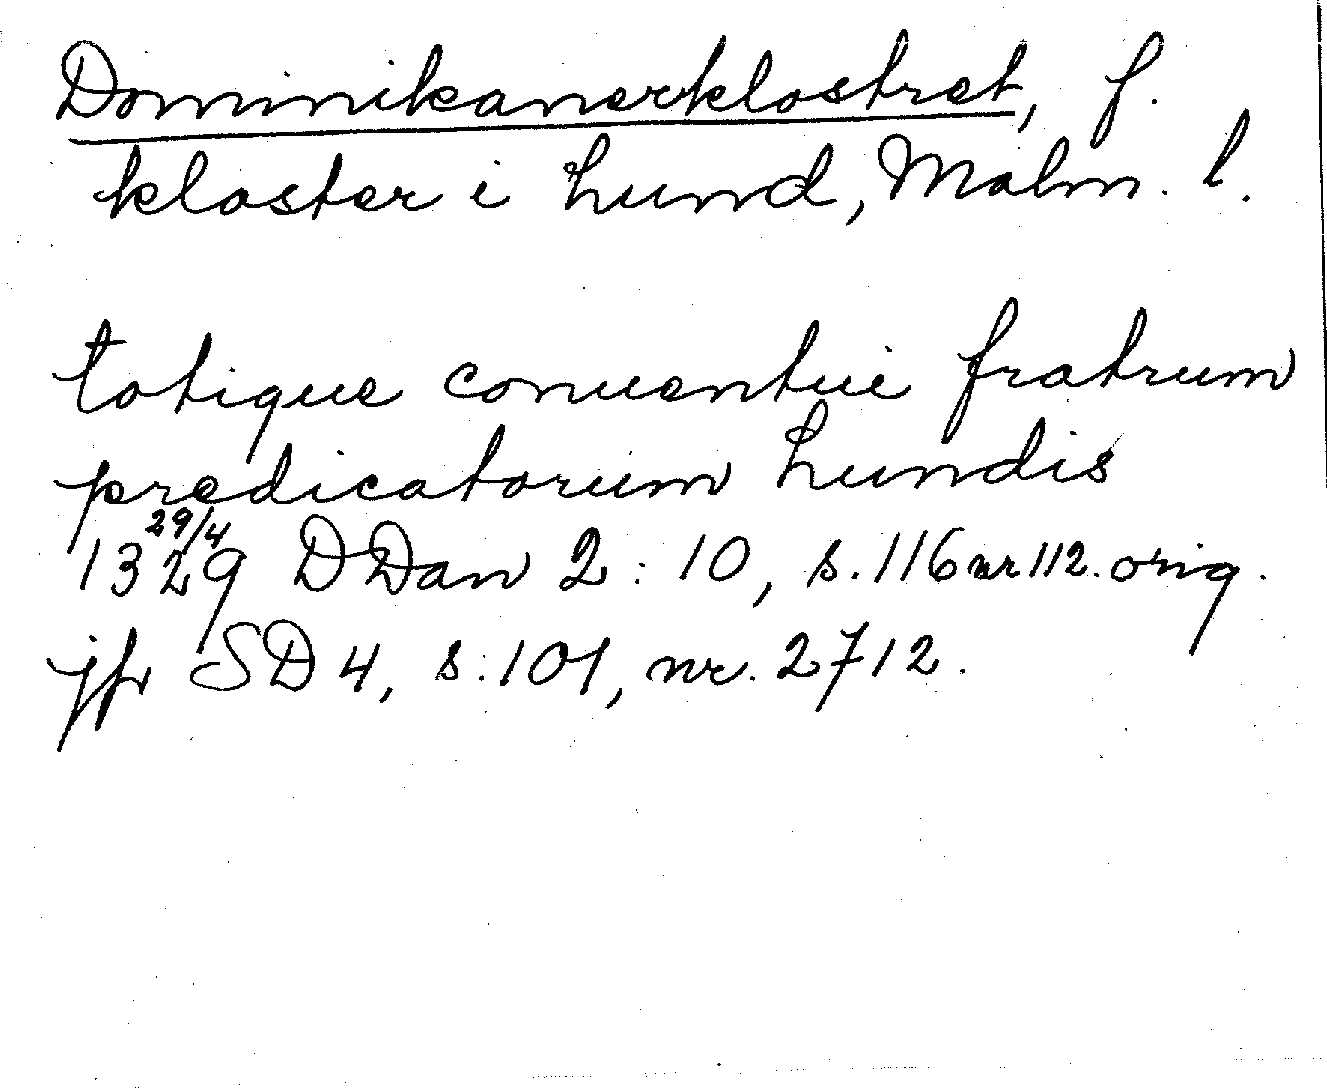 Dominikanerklostret, f.
kloster i Lund, Malm. l.
totique conuentui fratrum
predicatorum Lundis
29/4
1329 DDan 2:10, s.116 nr 112. orig.
jfr SD 4, s.101, nr. 2712.